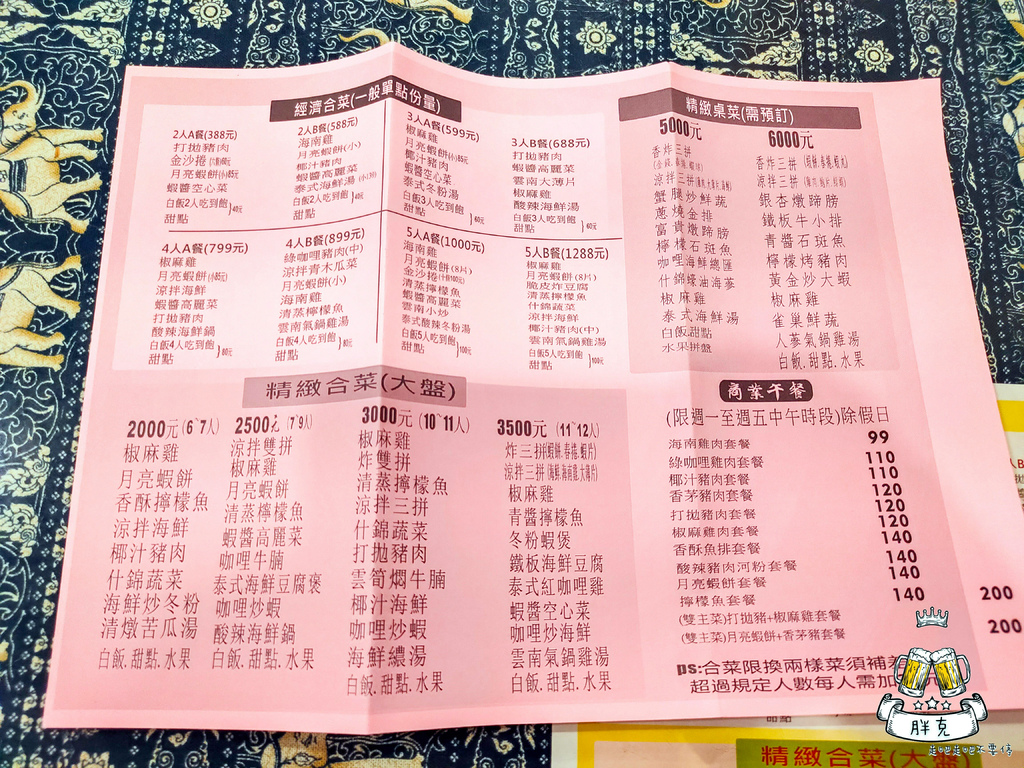 經濟合菜(一般單點份量)
2人A餐(388元)
打拋豬肉
金沙捲
月亮蝦餅(小)
蝦醬空心菜
白飯2人吃到飽
甜點
40元
2人B餐(588元)
海南雞
月亮蝦餅(小)
椰汁豬肉
蝦醬高麗菜
泰式海鮮湯(小)
白飯2人吃到飽
甜點
40元
3人A餐(599元)
椒麻雞
月亮蝦餅(小)
椰汁豬肉
蝦醬空心菜
泰式冬粉湯
白飯3人吃到飽
甜點
60元
3人B餐(688元)
打拋豬肉
蝦醬高麗菜
雲南大薄片
椒麻雞
酸辣海鮮湯
白飯3人吃到飽
甜點
60元
4人A餐(799元)
椒麻雞
月亮蝦餅
涼拌海鮮
蝦醬高麗菜
打拋豬肉
酸辣海鮮鍋
白飯4人吃到飽
甜點
80元
4人B餐(899元)
綠咖哩豬肉(中)
涼拌青木瓜菜
月亮蝦餅(小)
海南雞
清蒸檸檬魚
雲南氣鍋雞湯
白飯4人吃到飽
甜點
80元
5人A餐(1000元)
海南雞
月亮蝦餅(8片)
金沙捲
清蒸檸檬魚
蝦醬高麗菜
雲南小炒
泰式酸辣冬粉湯
白飯5人吃到飽
甜點
100元
5人B餐(1288元)
椒麻雞
月亮蝦餅(8片)
脆皮炸豆腐
清蒸檸檬魚
什錦蔬菜
涼拌海鮮
椰汁豬肉(中)
雲南氣鍋雞湯
白飯5人吃到飽
甜點
100元
精緻桌菜(需預訂)
5000元
香炸三拼
涼拌三拼
蟹腿炒鮮蔬
蔥燒金排
富貴燉蹄膀
檸檬石斑魚
咖哩海鮮總匯
什錦蠔油海蔘
椒麻雞
泰式海鮮湯
白飯甜點
水果拼盤
6000元
香炸三拼
涼拌三拼
銀杏燉蹄膀
鐵板牛小排
青醬石斑魚
檸檬烤豬肉
黃金炒大蝦
椒麻雞
雀巢鮮蔬
人蔘氣鍋雞湯
白飯.甜點.水果
精緻合菜(大盤)
2000元(6~7人)
椒麻雞
月亮蝦餅
香酥檸檬魚
涼拌海鮮
椰汁豬肉
什錦蔬菜
海鮮炒冬粉
清燉苦瓜湯
白飯.甜點.水果
2500元(7~9人)
涼拌雙拼
椒麻雞
月亮蝦餅
清蒸檸檬魚
蝦醬高麗菜
咖哩牛腩
泰式海鮮豆腐褒
咖哩炒蝦
酸辣海鮮鍋
白飯.甜點.水果
3000元(10~11人)
椒麻雞
炸雙拼
清蒸檸檬魚
涼拌三拼
什錦蔬菜
打拋豬肉
雲筍燜牛腩
椰汁海鮮
咖哩炒蝦
海鮮濃湯
白飯.甜點.水果
3500元(11~12人)
炸三拼(蝦餅.春捲.蝦片)
涼拌三拼(海鮮.海南雞.大薄片)
椒麻雞
青醬檸檬魚
冬粉蝦煲
鐵板海鮮豆腐
泰式紅咖哩雞
蝦醬空心菜
咖哩炒海鮮
雲南氣鍋雞湯
白飯.甜點.水果
商業午餐
(限週一至週五中午時段)除假日
海南雞肉套餐 99
綠咖哩雞肉套餐 110
椰汁豬肉套餐 110
香茅豬肉套餐 120
打拋豬肉套餐 120
椒麻雞肉套餐 120
香酥魚排套餐 140
酸辣豬肉河粉套餐 140
月亮蝦餅套餐 140
檸檬魚套餐 140
(雙主菜)打拋豬+椒麻雞套餐 200
(雙主菜)月亮蝦餅+香茅豬套餐 200
ps:合菜限換兩樣菜須補差
超過規定人數每人需加
胖克
走吧走吧不要停
甜點
精緻合菜(大盤)